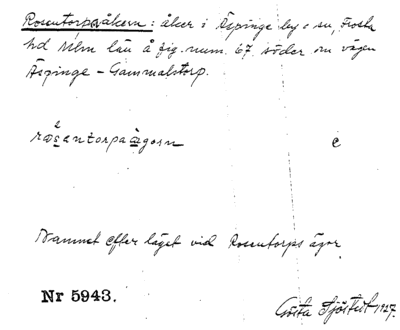 Rosentorpsåkern: åker i Äspinge by o sn, Frosta
hd Mlm län å fig. num. 67 söder om vägen
Äspinge - Gammalstorp.
c
Namnet efter läget vid Rosentorps ägor
Nr 5943.
Gösta Sjöstedt 1927.